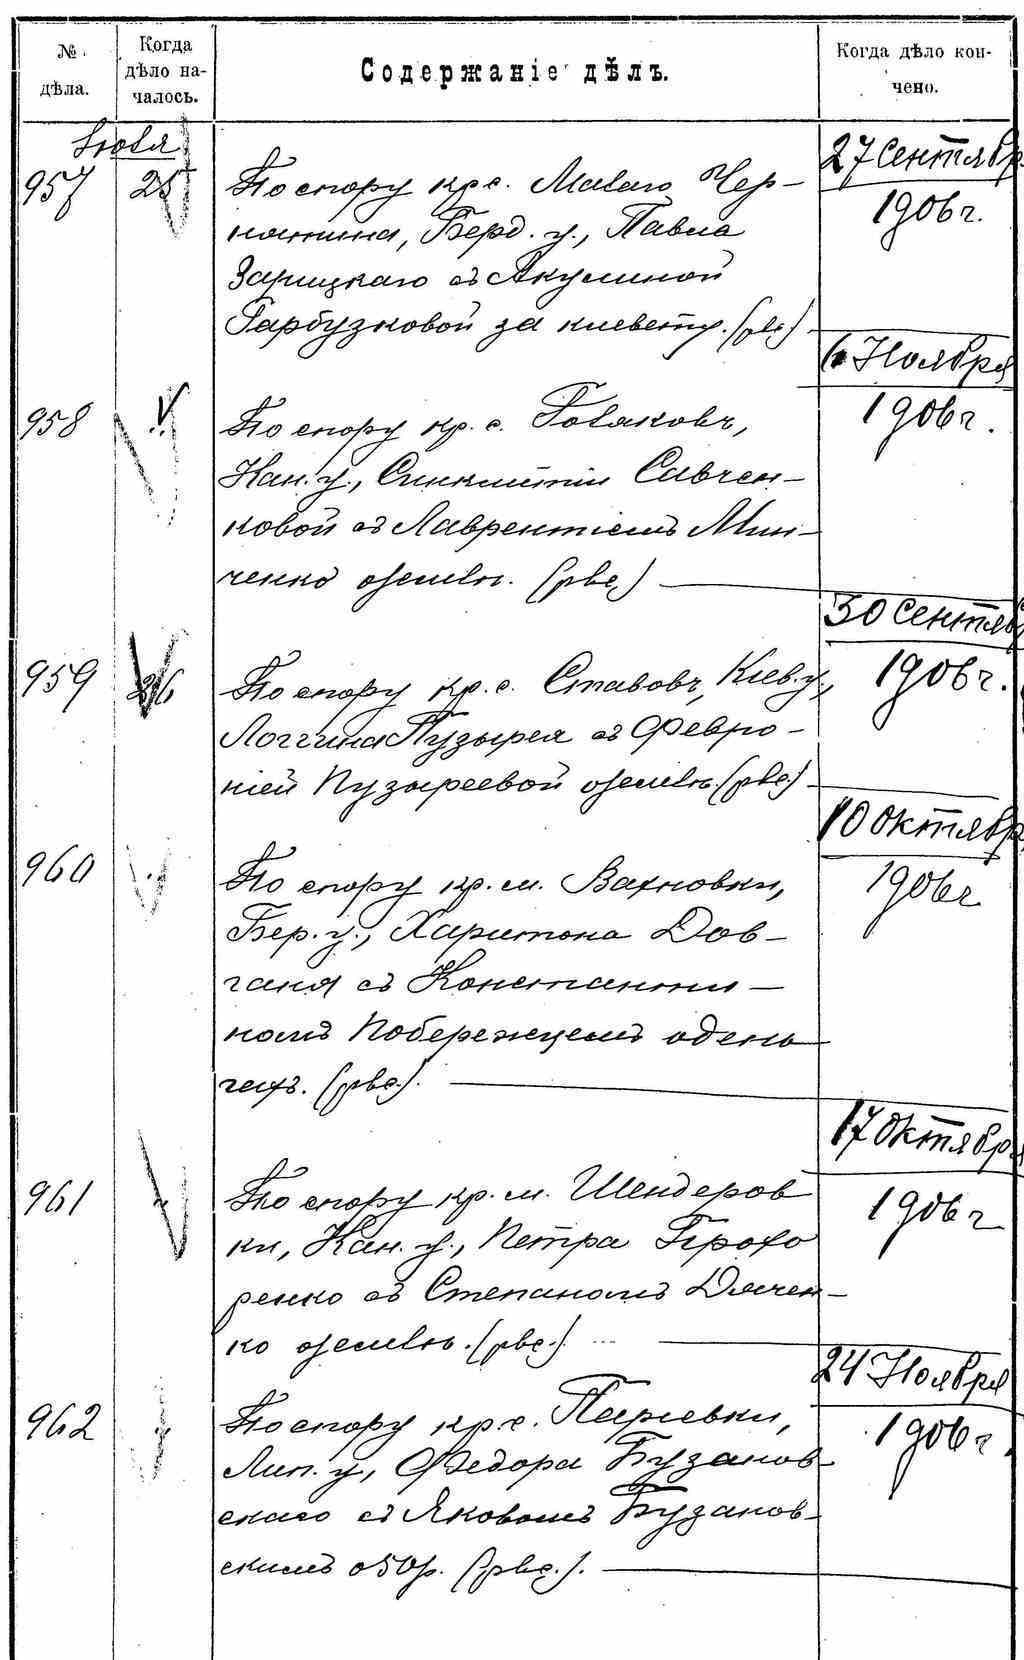 № дѣла.
Когда дѣло на-
чалось.
Содержаніе дѣлъ.
Когда дѣло кон-
чено.
Іюля
957
25
По спору кр. с. Малаго Чер-
нятина, Берд. у., Павла
Зарицкаго съ Акулиной
Гарбузковой за клевету. (рвс)
27 Сентябр
1906 г.
958
По спору кр. с.
Кан. у., Синклитіи Савчен-
ковой съ Лаврентіемъ Мин-
ченко о землѣ. (рвс)
6 Ноября
1906 г.
959
26
По спору кр. с. Ставовъ, Кіев. у.,
Логгина Пузырея съ Февро-
ніей Пузыреевой о землѣ. (рвс)
30 Сентяб
1906 г.
960
По спору кр. м. Вахновки,
Бер. у., Харитона Дов-
ганя съ Константи-
номъ Побережцемъ о день
гахъ. (рвс.).
10 Октябр
1906 г
961
"
По спору кр. м. Шендеров
ки, Кан. у., Петра Прохо
ренко съ Степаномъ Дячен-
ко о землѣ. (рвс.).
17 Октябр
1906 г
962
"
По спору кр. с. Паріевки,
Лип. у., Федора Бузанов-
скаго съ Яковомъ Бузанов-
скимъ о 50 р. (рвс.).
24 Ноября
1906 г.